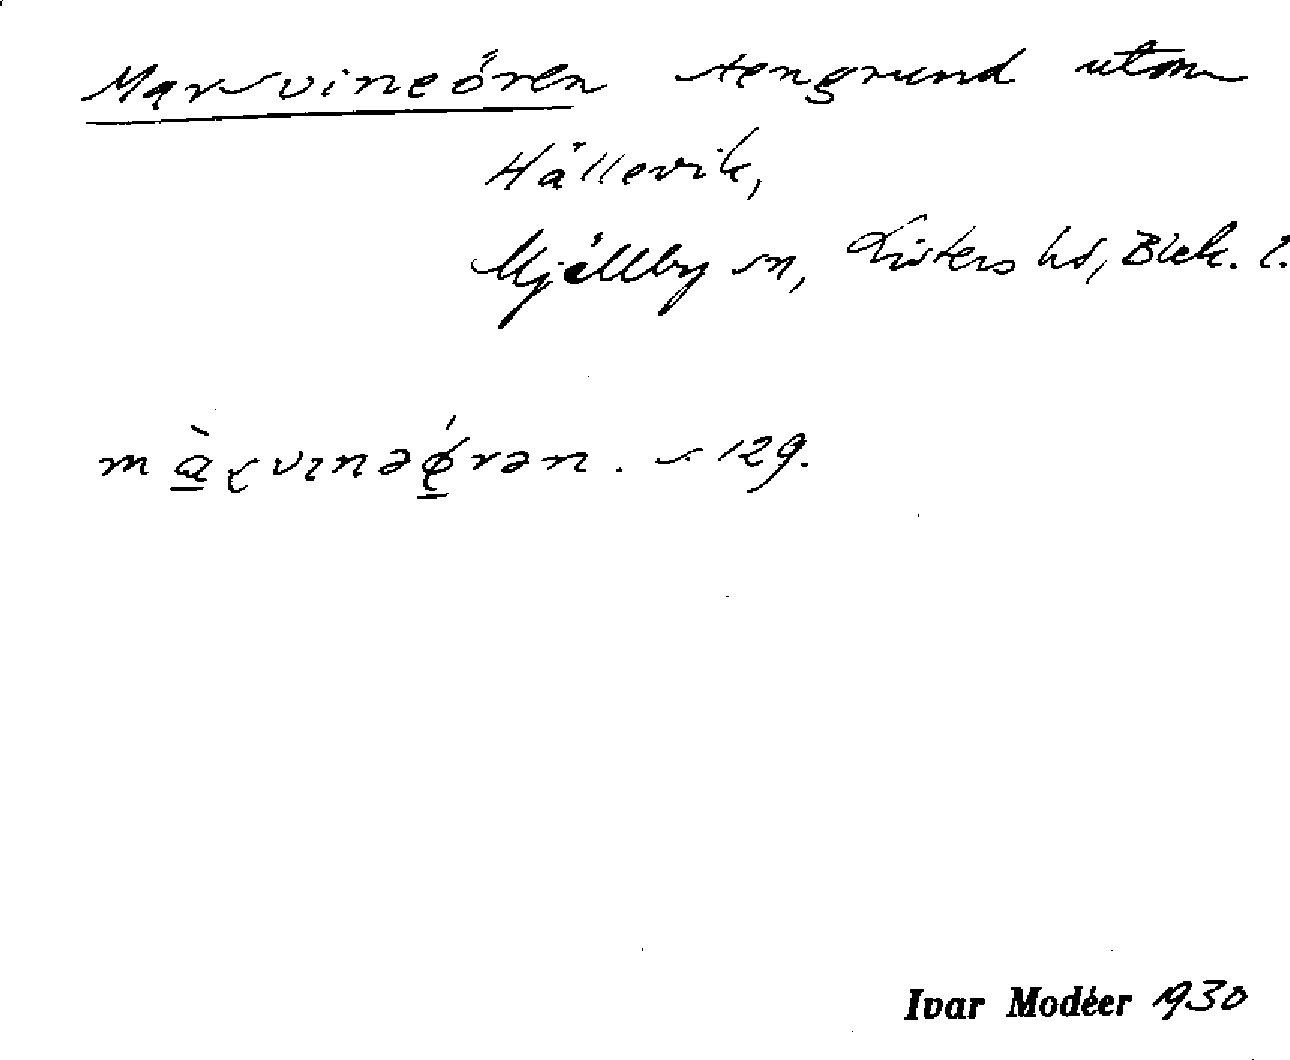 Marvineören stengrund utom
Hällevik,
Mjällby sn, Listers hd, Blek. l.
129.
Ivar Modéer 1930